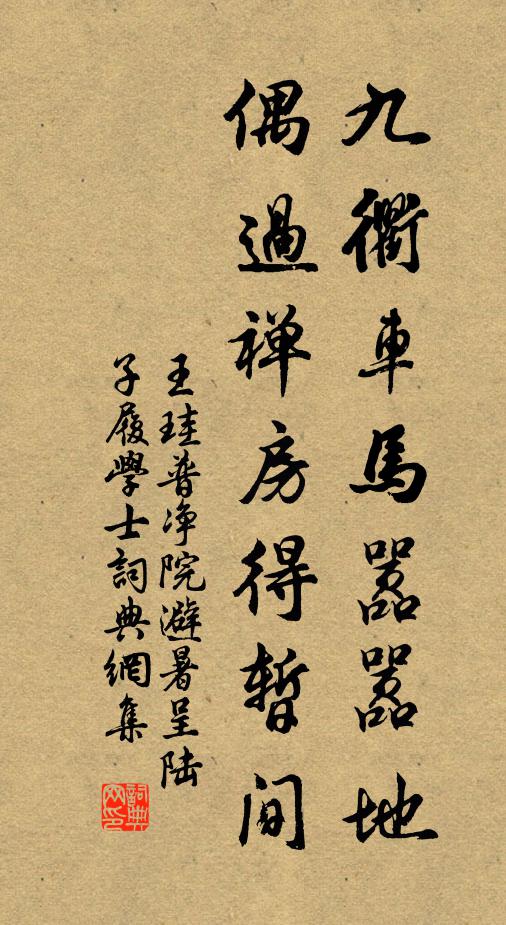 九衢車馬囂囂地
偶過禅房得暫间
王珪普净院避暑呈陆
子履學士詞典網集
詞典网印